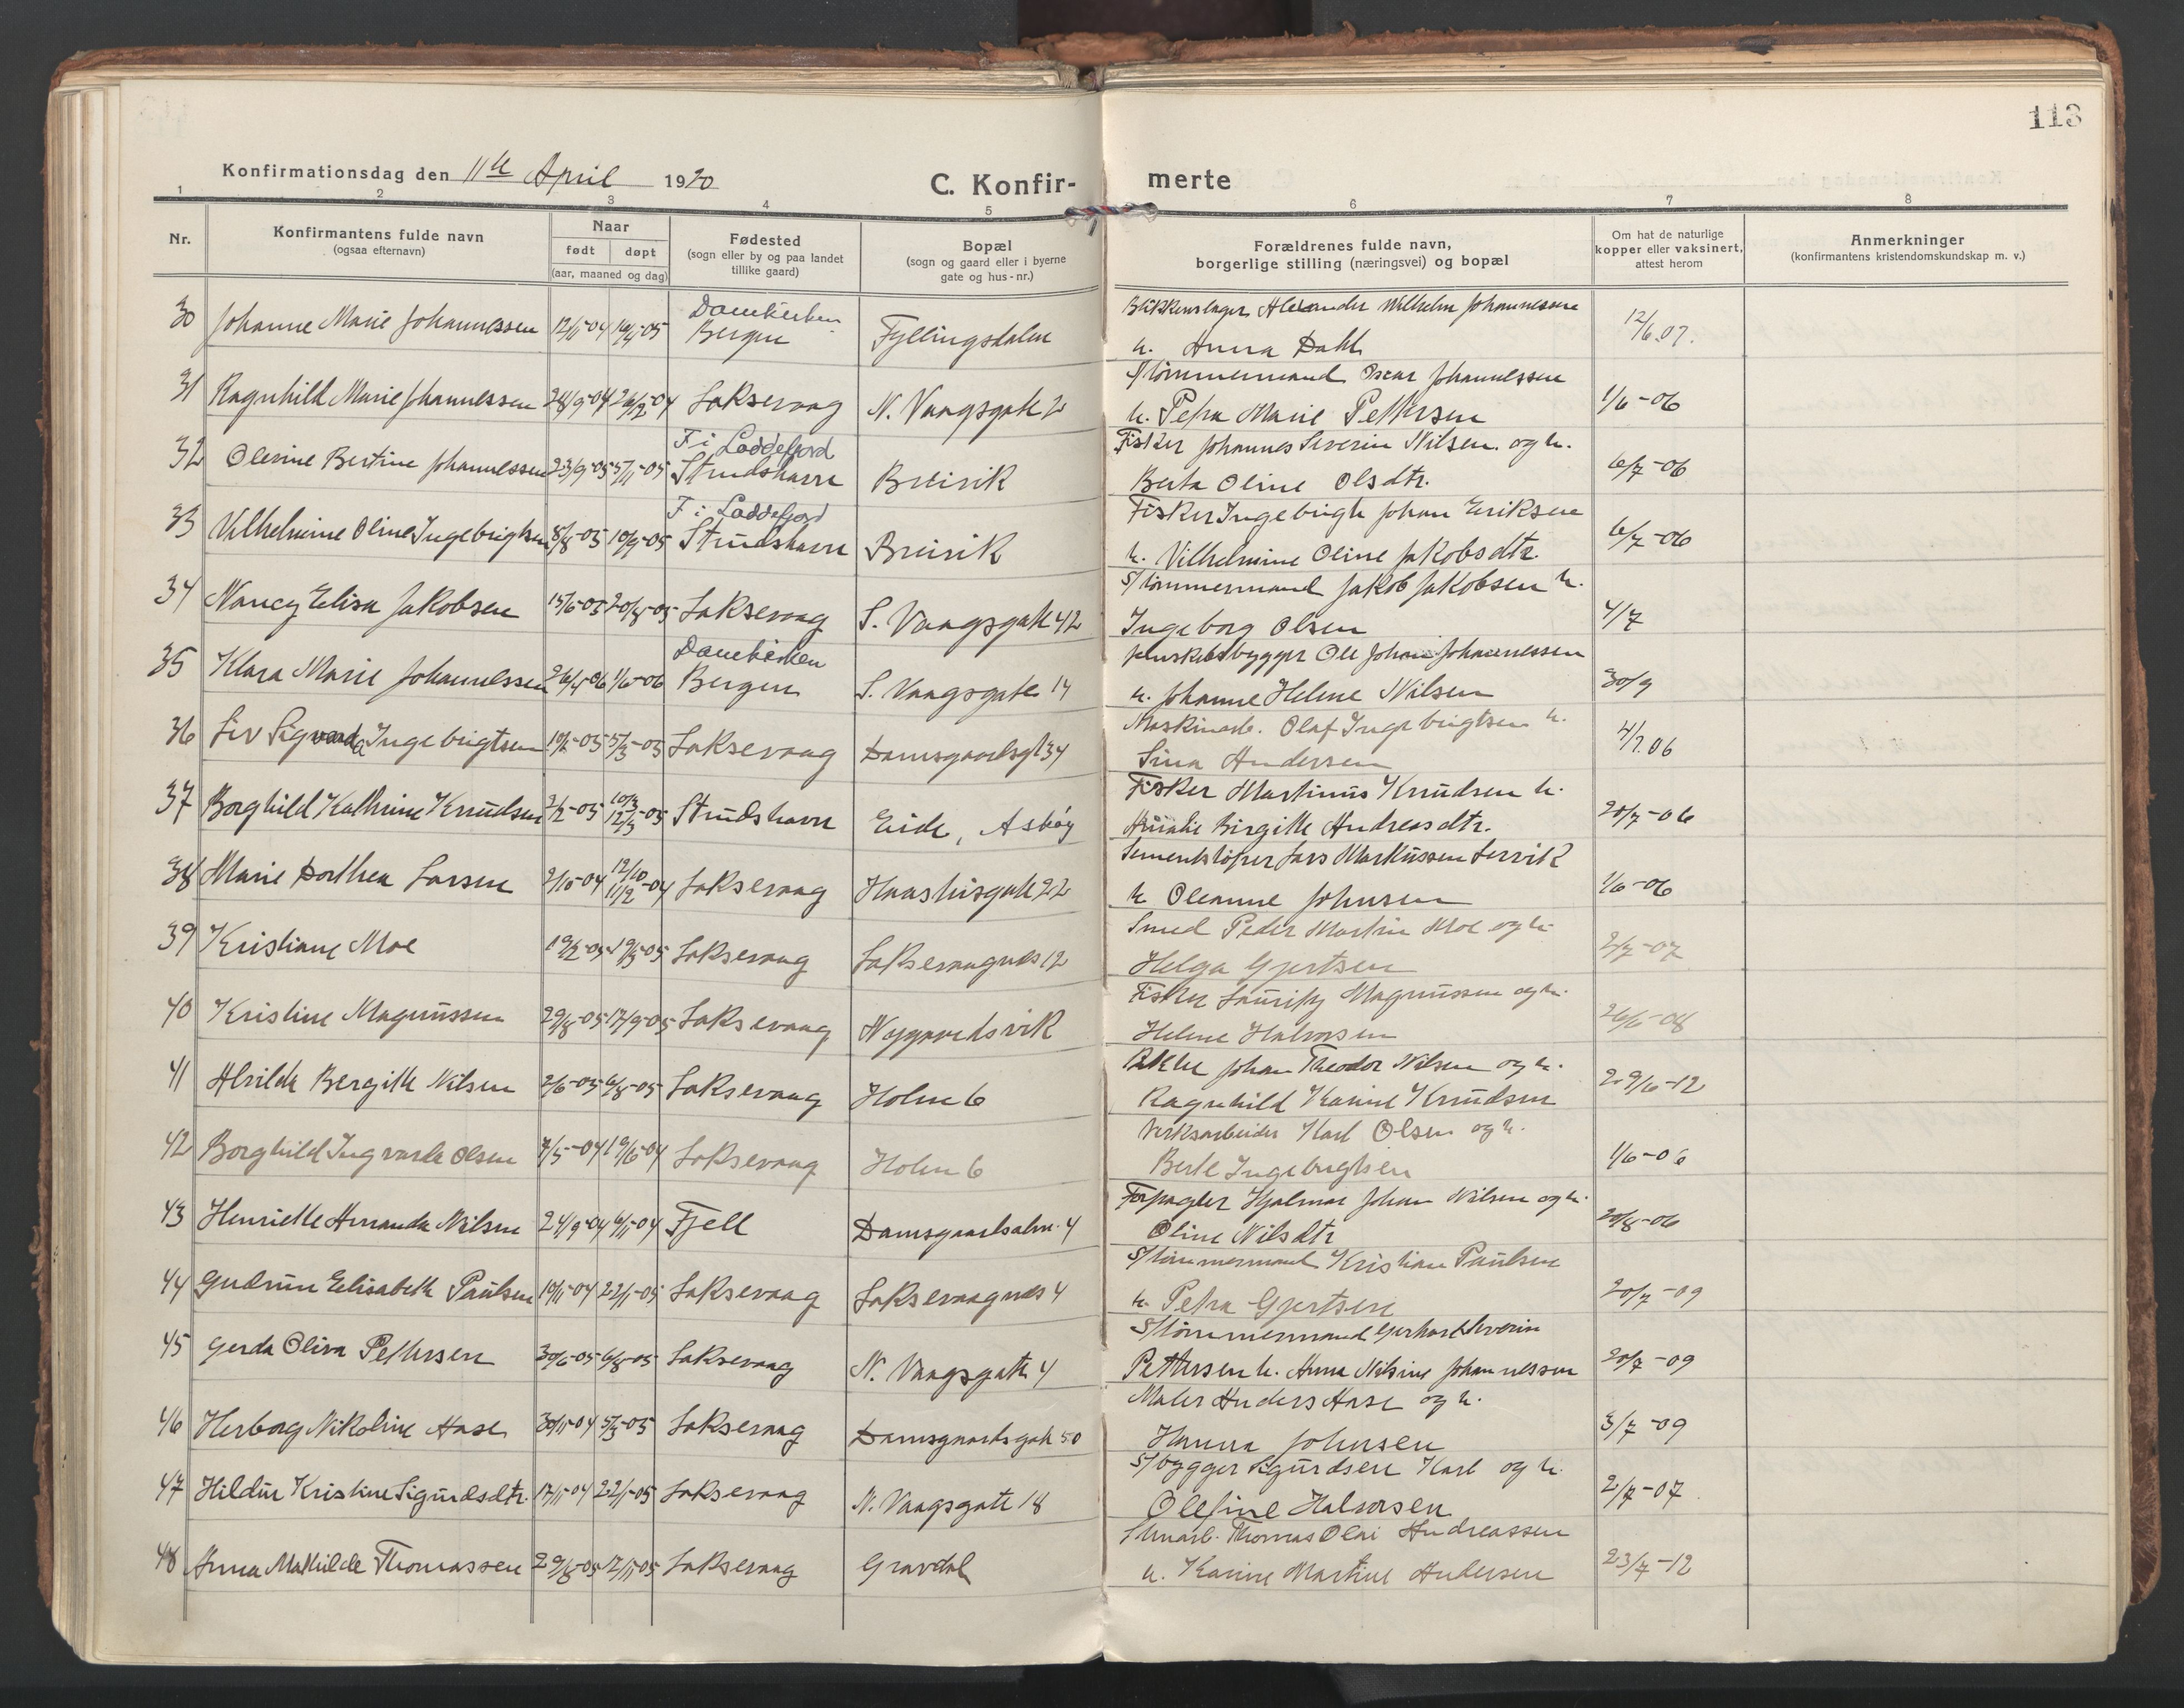 113
Konfirmationsdag den 11te April 1920
C. Konfir- merte
1 2 3 4 5 6 7 8
Nr.
Konfirmantens fulde navn
(ogsaa efternavn)
Naar
født døpt
(aar, maaned og dag)
Fødested
(sogn eller by og paa landet
tillike gaard)
Bopæl
(sogn og gaard eller i byerne
gate og hus-nr.)
Forældrenes fulde navn,
borgerlige stilling (næringsvei) og bopæl
Om hat de naturlige
kopper eller vaksinert,
attest herom
Anmerkninger
(konfirmantens kristendomskundskap m. v.)
Domkirken Blikkenslager Alexander Wilhelm Johannessen
30 Johanne Marie Johannessen 12/11-04 16/4-05 Bergen Fyllingsdalen h. Anna Dahl 12/6.07.
Tömmermand Oscar Johannessen
31 Ragnhild Marie Johannessen 24/9-04 26/12-04 Laksevaag N. Vaagsgate 2 h. Petra Marie Pettersen 1/6-06
F. i Loddefjord Fisker Johannes Severin Nilsen. og h.
32 Olevine Bertine Johannessen 23/9-05 5/11-05 Strudshavn Breivik Berta Oline Olsdtr. 6/7-06
F. i Loddefjord Fisker Ingebrigt Johan Eriksen
33 Vilhelmine Oline Ingebrigtsen 8/8-05 10/9-05 Strudshavn Breivik h. Vilhelmine Oline Jakobsdtr. 6/7-06
S/tömmermand Jakob Jakobsen h.
34 Nancy Elisa Jakobsen 15/6-05 20/8-05 Laksevaag S. Vaagsgate 42 Ingeborg Olsen 4/7
Domkirken Jernskibsbygger Ole Johan Johannessen
35 Klara Marie Johannessen 26/4-06 1/6-06 Bergen S. Vaagsgate 14 h. Johanne Helene Nilsen 30/9
Maskinarb. Olaf Ingebrigtsen h.
36 Liv Sigvarda Ingebrigtsen 5/3-05 Laksevaag Damsgaardsgt 34 Sina Andersen 4/7.06
Fisker Martinus Knudsen h.
37 Borghild Kathrine Knudsen 2/2-05 10/3 12/3-05 Strudshavn Eide, Askøy Birgitte Andreasdtr. 20/7-06
Sementstöper Lars Markussen Lervik
38 Marie Dorthea Larsen 2/10-04 12/10 11/12-04 Laksevaag 22 h Oleanne Johnsen 1/6-06
Smed Peder Martin Moe og h.
39 Kristiane Moe 19/2-05 19/3-05 Laksevaag Laksevaagnes 12 Helga Gjertsen 2/7-07
Fisker Lauritz Magnussen og h.
40 Kristine Magnussen 29/8-05 17/9-05 Laksevaag Nygaardsvik Helene Halvorsen 26/6-08
Johan Theodor Nilsen og h.
41 Alvilde Bergitte Nilsen 2/6-05 6/8-05 Laksevaag Holm 6 Ragnhild Karine Knudsen 29/6-12
Verksarbeider Karl Olsen og h.
42 Borghild Ingvarda Olsen 7/5-04 19/6-04 Laksevaag Holm 6 Berte Ingebrigtsen 1/6-06
Forpagter Hjalmar Johan Nilsen og h.
43 Henriette Amanda Nilsen 24/9-04 6/11-04 Fjell Damsgaardsalm. 4 Oline Nilsdtr 20/8-06
S/tömmermand Kristian Paulsen
44 Gudrun Elisabeth Paulsen 10/11-04 22/1-05 Laksevaag Laksevaagnes 4 h. Petra Gjertsen 20/7-09
S/tömmermand Gerhard Severin
45 Gerda Oliva Pettersen 30/6-05 6/8-05 Laksevaag N. Vaagsgate 4 Pettersen h. Anna Nilsine Johannessen 20/7-09
Maler Anders Aase og h.
46 Herborg Nikoline Aase 30/11-04 5/3-05 Laksevaag Damsgaardsgate 50 Hanna Johnsen 3/7-09
S/bygger Sigurdsen Karl og h.
47 Hildur Kristine Sigurdsdtr. 17/11-04 22/1-05 Laksevaag N. Vaagsgate 18 Olefine Halvorsen 2/7-07
Thomas Olai Andreassen
48 Anna Mathilde Thomassen 29/8-05 12/11-05 Laksevaag Gravdal h. Karine Martine Andersen 23/7-12